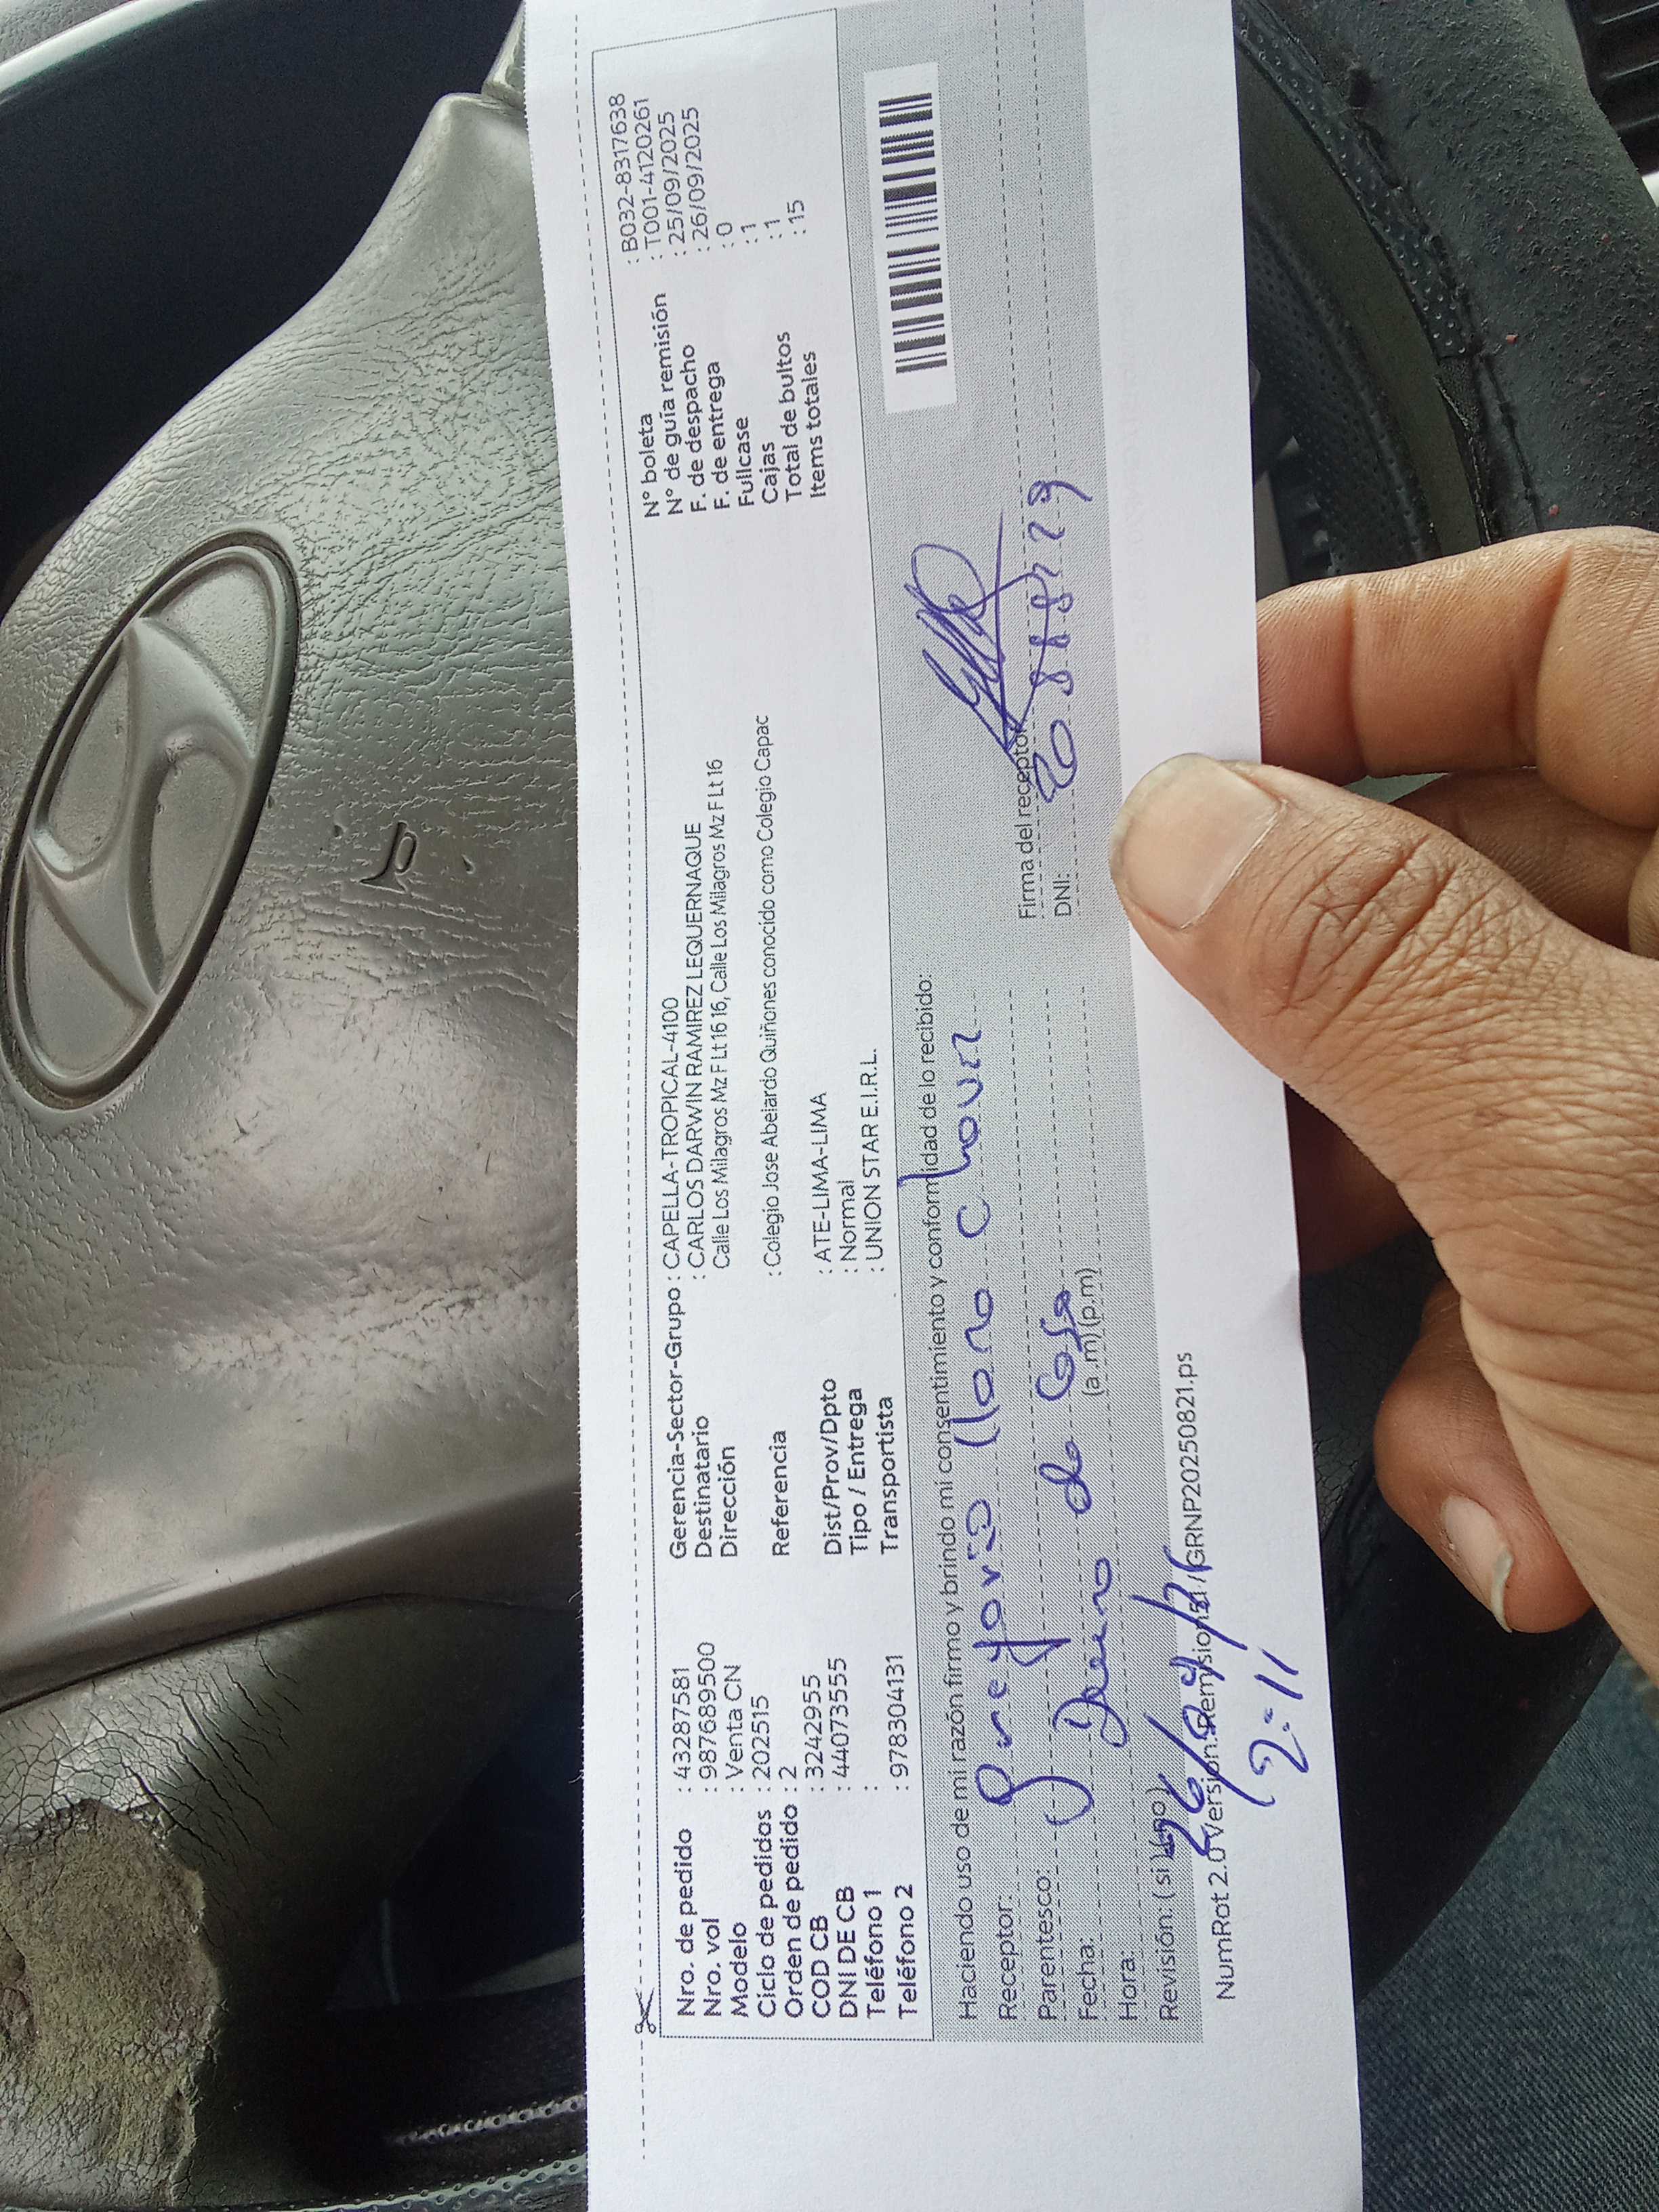 Nro. de pedido : 43287581
Nro. vol : 987689500
Modelo : Venta CN
Ciclo de pedidos : 202515
Orden de pedido : 2
COD CB : 3242955
DNI DE CB : 44073555
Teléfono 1 :
Teléfono 2 : 978304131
Gerencia-Sector-Grupo : CAPELLA-TROPICAL-4100
Destinatario : CARLOS DARWIN RAMIREZ LEQUERNAQUE
Dirección Calle Los Milagros Mz F Lt 16 16, Calle Los Milagros Mz F Lt 16
Referencia : Colegio Jose Abelardo Quiñones conocido como Colegio Capac
Dist/Prov/Dpto : ATE-LIMA-LIMA
Tipo / Entrega : Normal
Transportista : UNION STAR E.I.R.L.
N° boleta : B032-8317638
N° de guía remisión : T001-4120261
F. de despacho : 25/09/2025
F. de entrega : 26/09/2025
Fullcase : 0
Cajas : 1
Total de bultos : 1
Items totales : 15
Haciendo uso de mi razón firmo y brindo mi consentimiento y conformidad de lo recibido:
Receptor: Gregorio
Parentesco:
Fecha: Dueno de Casa
Hora: (a.m) (p.m)
Revisión: ( si ) ( no)
Firma del receptor
DNI:
26/09/
NumRot 2.0 Version.Remision51 / GRNP20250821.ps
2:11